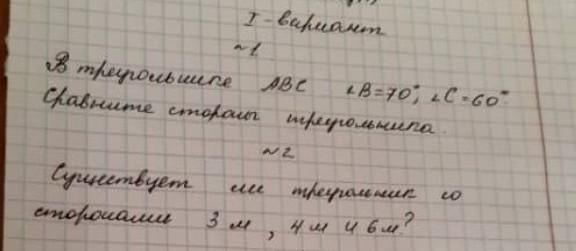 I - вариант
~1
В треугольнике ABC ∠B=70°, ∠C=60°
Сравните стороны треугольника.
~2
Существует ли треугольник со
сторонами 3 м, 4 м и 6 м?